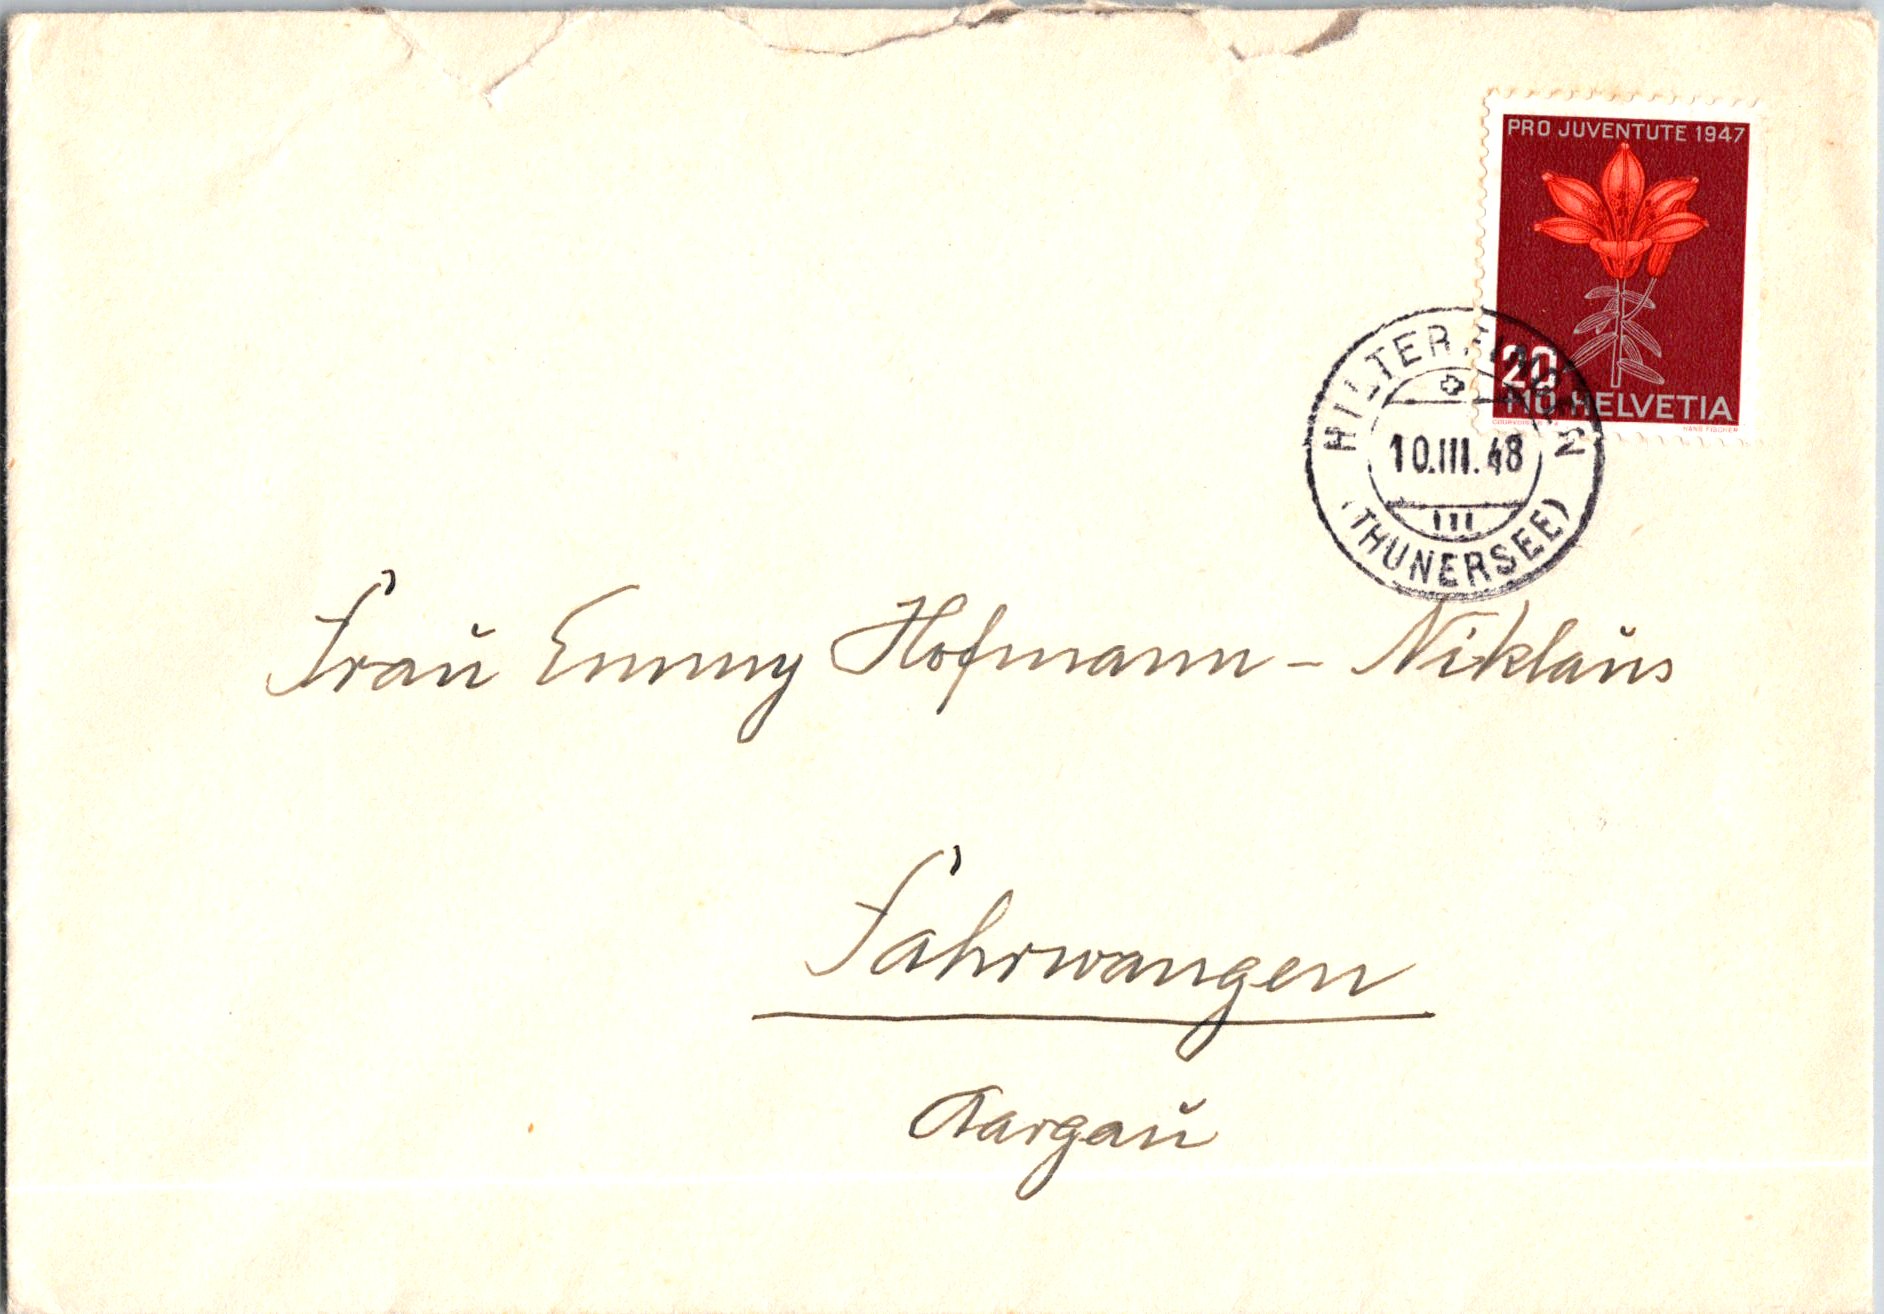 PRO JUVENTUTE 1947
20
+10 HELVETIA
HANS FISCHER
HILTERFINGEN
10.III.48
III
(THUNERSEE)
Frau Emmy Hofmann - Niklaus
Fahrwangen
Aargau